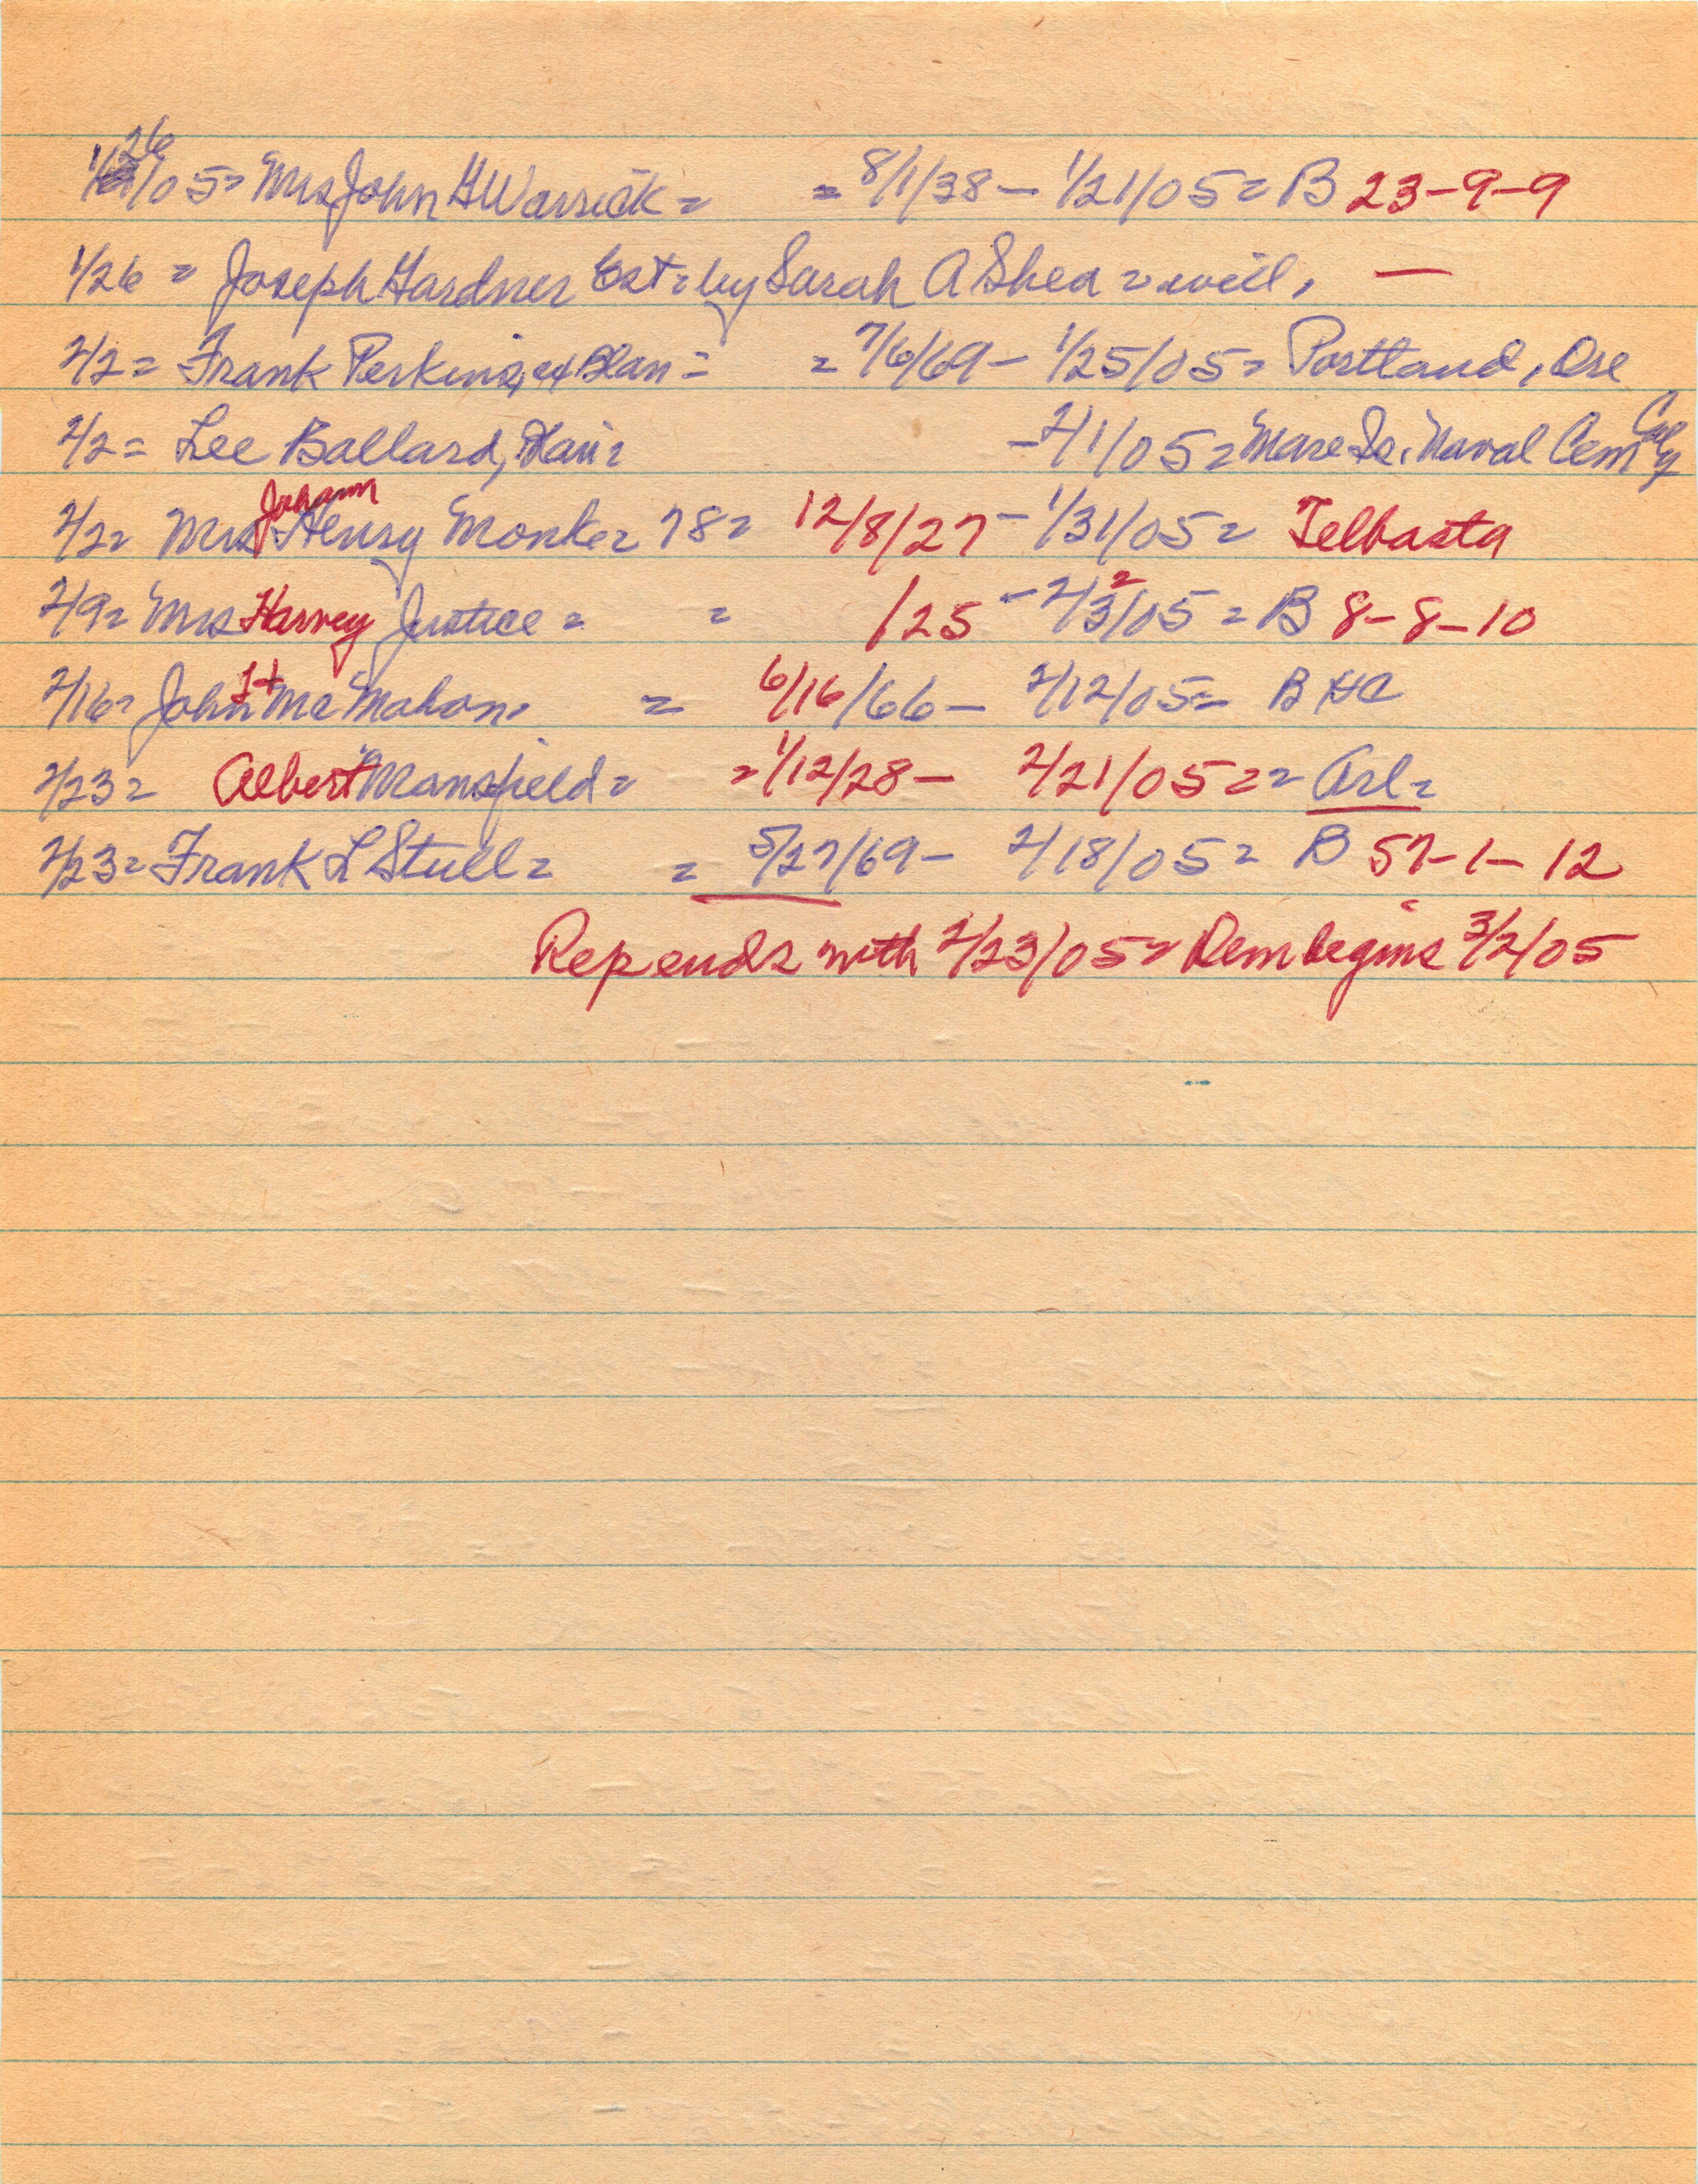 1/26/05= Mrs John H Warrick = = 8/1/38 - 1/21/05 = B 23-9-9
1/26 = Joseph Gardner Est = by Sarah A Shea = will, —
2/2 = Frank Perkins, ex Blair = = 7/6/69 - 1/25/05 = Portland, Ore
2/2 = Lee Ballard, Blair = - 2/1/05 = Mare Is. Naval Cem Cal
2/2 = Mrs Johann Henry Monke = 78 = 12/8/27 - 1/31/05 = Telbasta
2/9 = Mrs Harvey Justice = = /25 - 2/3/05 2 = B 8-8-10
2/16 = John H McMahon = 6/16/66 - 2/12/05 = B HC
2/23 = Albert Mansfield = = 1/12/28 - 2/21/05 = = Arl =
2/23 = Frank L Stull = = 5/27/69 - 2/18/05 = B 57-1-12
Rep ends with 2/23/05 = Dem begins 3/2/05